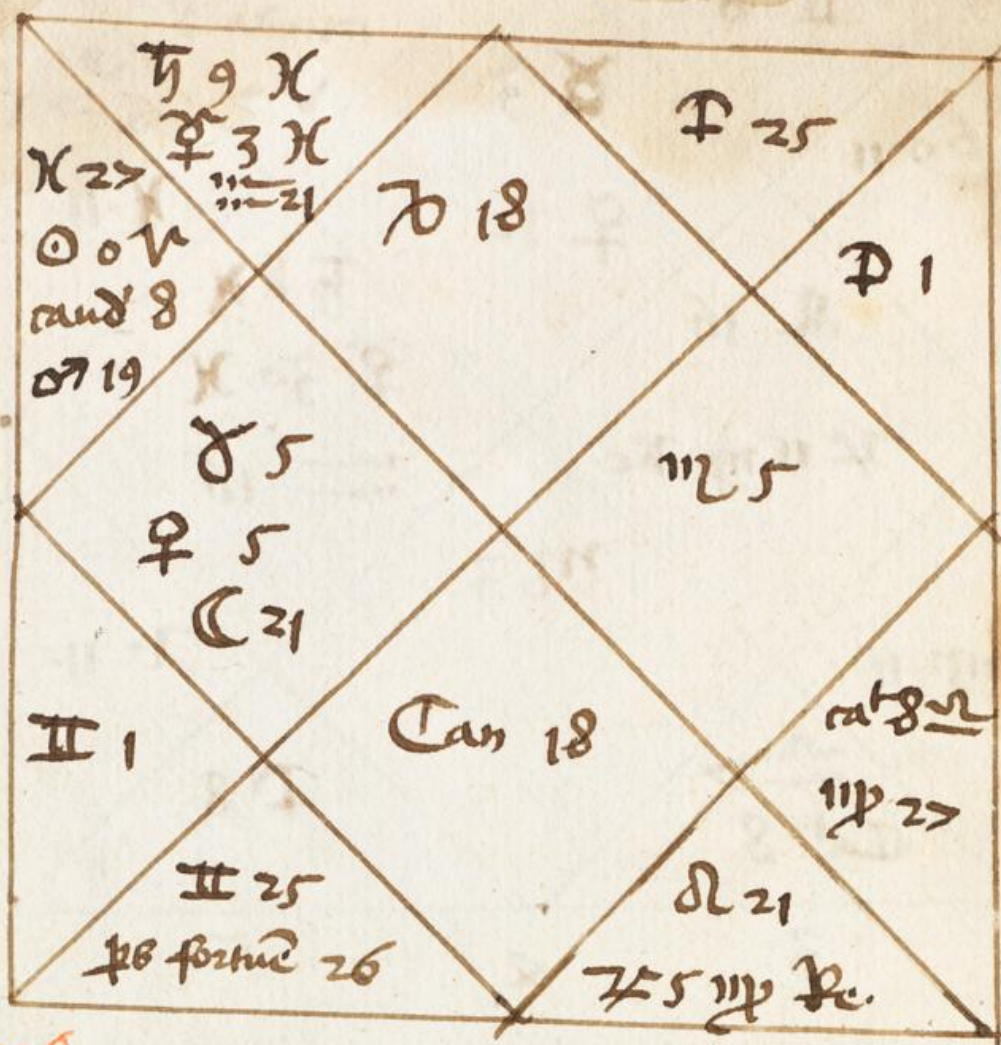 ♄ 9 ♓
☿ 3 ♓
♒ 21
♓ 27
☉ 0 ♈
caud 8
♂ 19
♑ 18
♐ 25
♐ 1
♉ 5
♀ 5
☾ 21
♏ 5
♊ 1
Can 18
cat 8 ♎
♍ 27
♊ 25
ps fortue 26
♌ 21
♃ 5 ♍ Re.